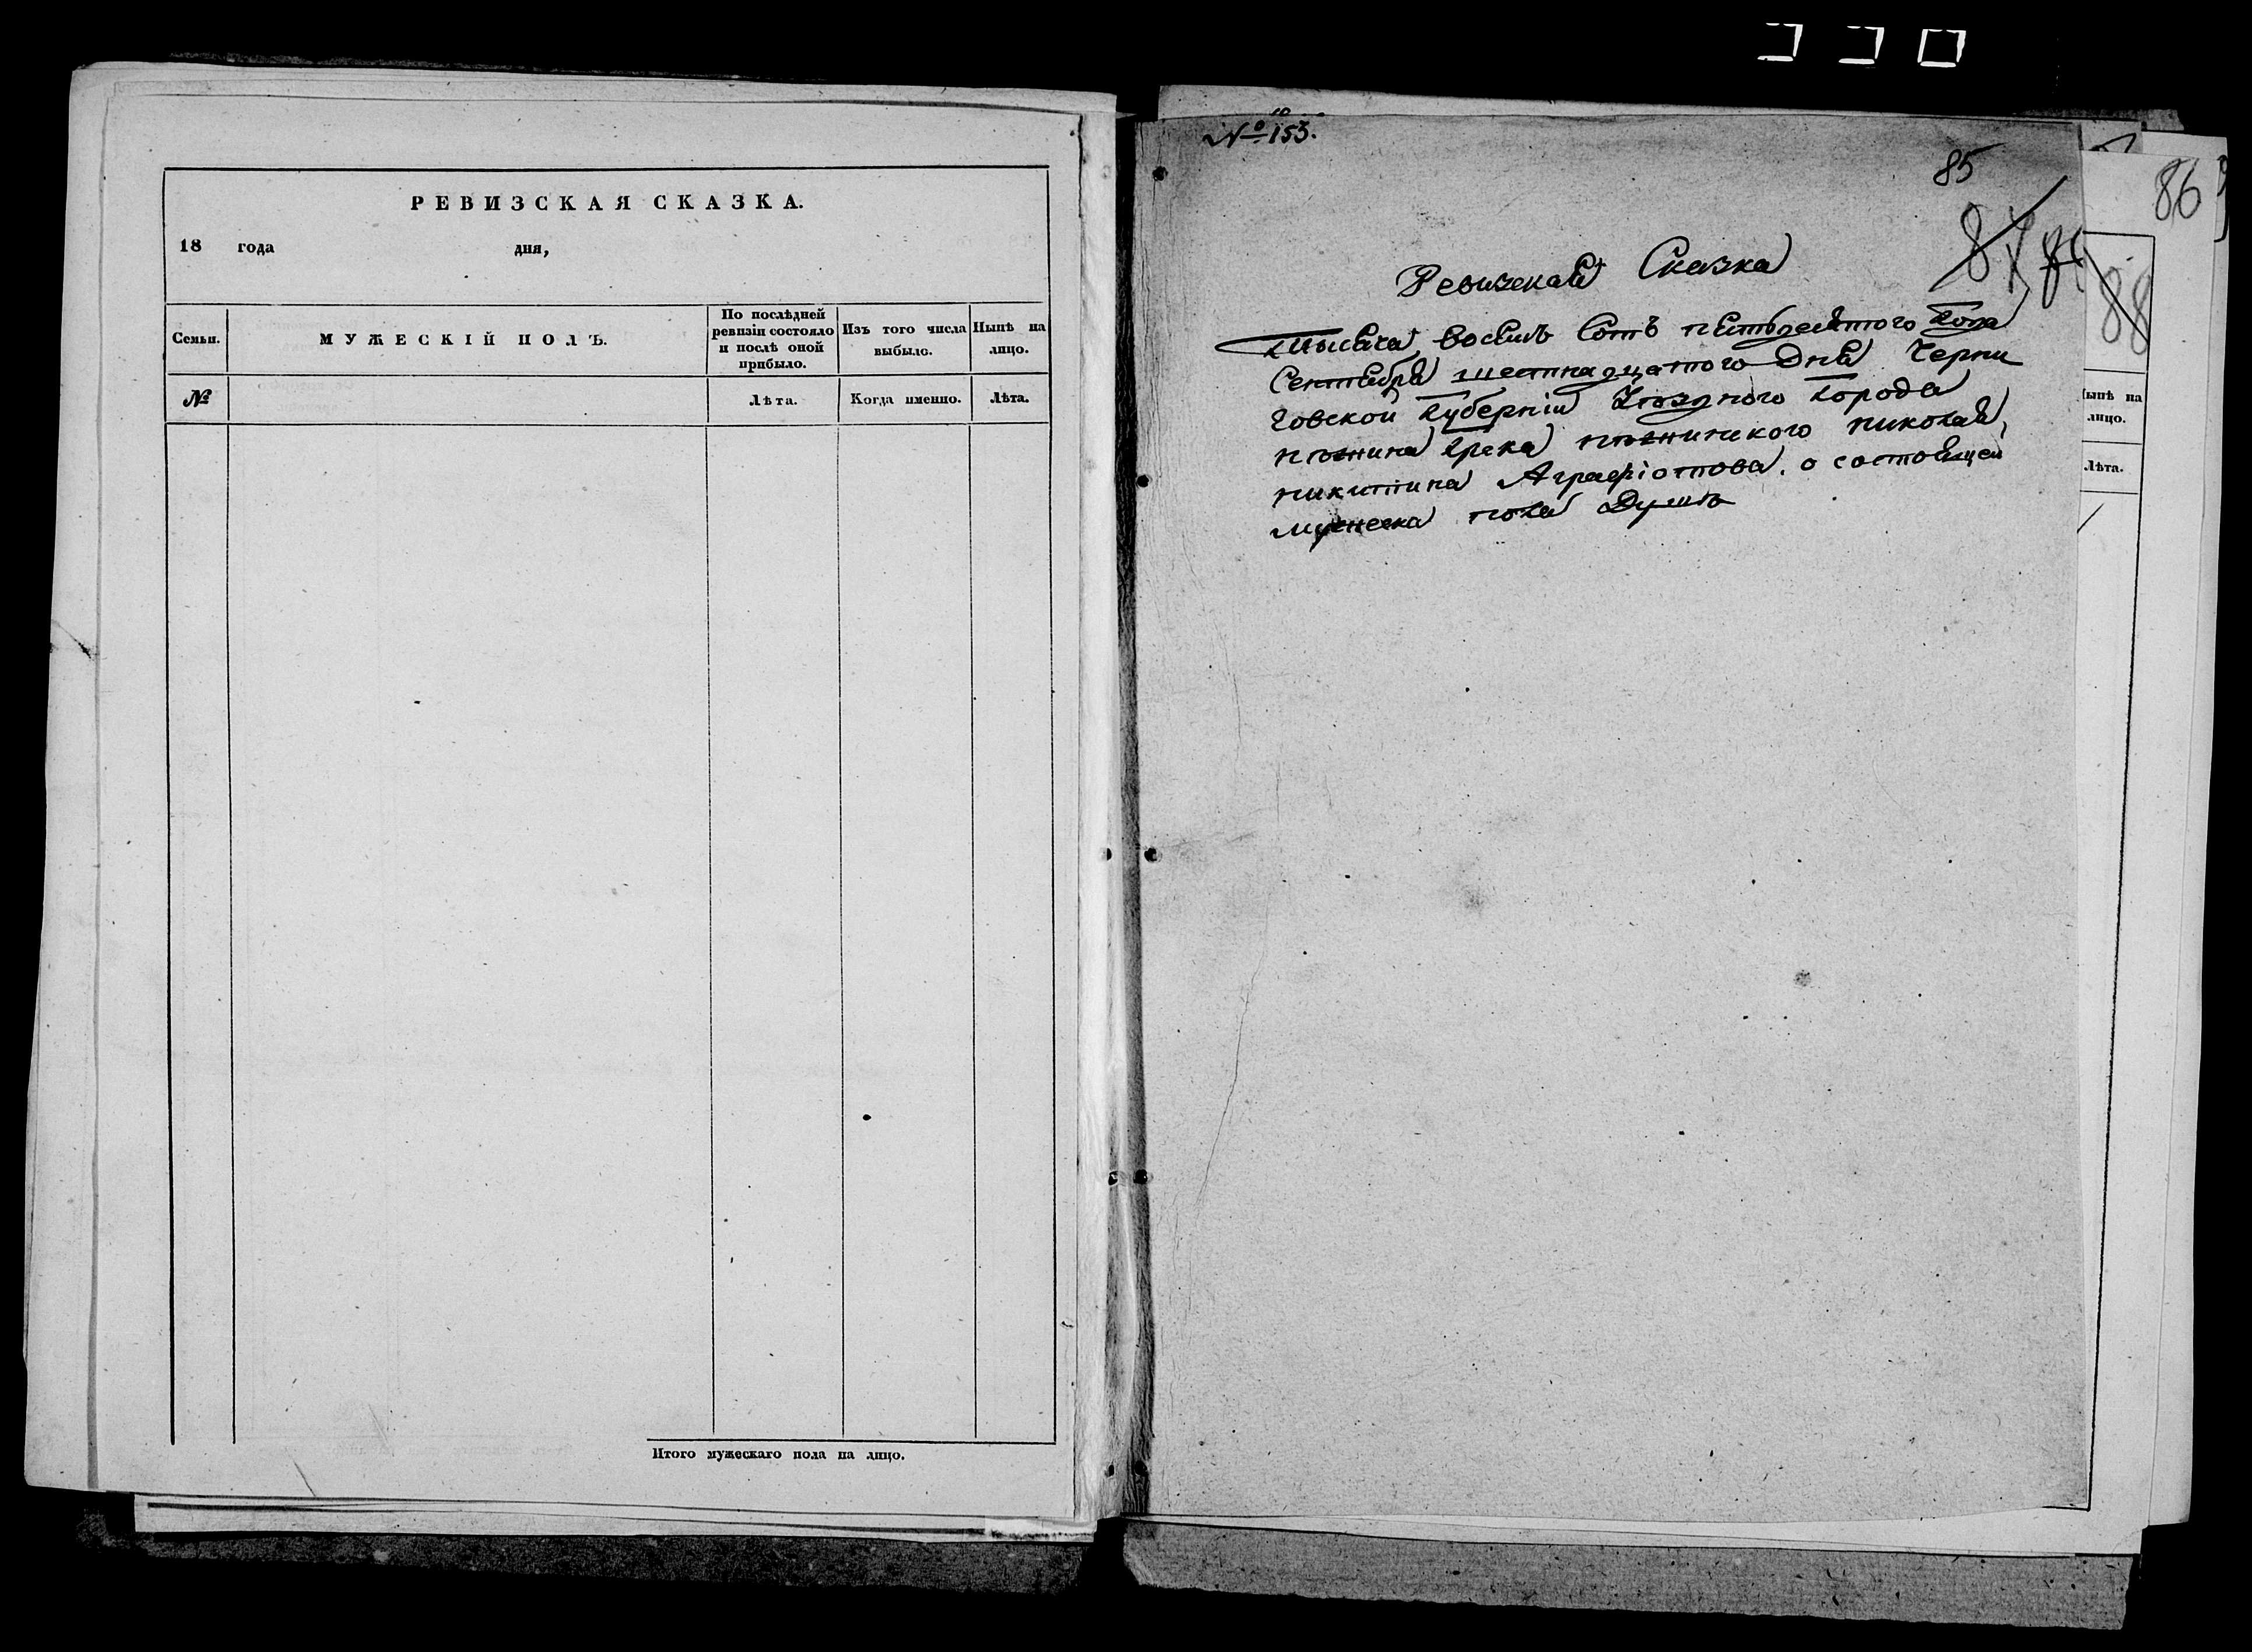 РЕВИЗСКАЯ СКАЗКА.
18 года дня,
Семьи. МУЖЕСКІЙ ПОЛЪ. По послѣдней ревизіи состояло и послѣ оной прибыло. Изъ того числа выбыло. Нынѣ на лицо.
№ Лѣта. Когда именно. Лѣта.
Итого мужескаго пола на лицо.
№ 153.
85
Ревизская Сказка
тысяча восемъ сотъ пятьдесятого года
Сентября шестнадцатого Дня Черни
говской Губерніи Уѣздного Города
нѣжина Грека нѣжинского николая,
никитина Аграфіотова. о состоящей
мужеска пола Душѣ
86
88
Нынѣ на
лицо.
Лѣта.